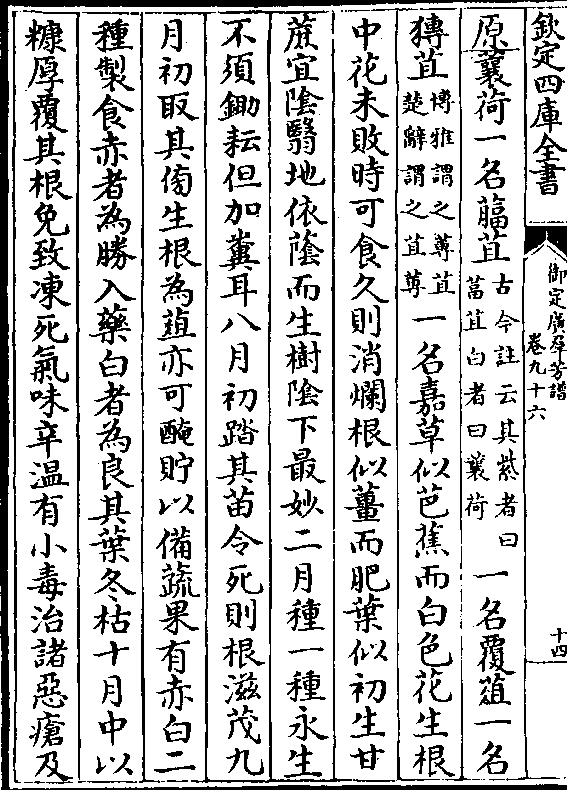 欽定四庫全書
御定廣羣芳譜
卷九十六
十四
原蘘荷一名葍苴古今註云其紫者曰葍苴白者曰蘘荷一名覆葅一名
猼苴博雅謂之蓴苴楚辭謂之苴蓴一名嘉草似芭蕉而白色花生根
中花未敗時可食久則消爛根似薑而肥葉似初生甘
蔗宜陰翳地依蔭而生樹陰下最妙二月種一種永生
不須鋤耘但加糞耳八月初踏其苗令死則根滋茂九
月初取其傍生根為葅亦可醃貯以備蔬果有赤白二
種製食赤者為勝入藥白者為良其葉冬枯十月中以
糠厚覆其根免致凍死氣味辛溫有小毒治諸惡瘡及